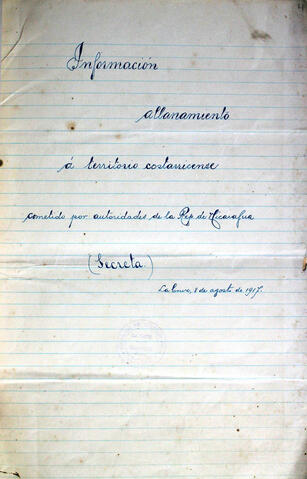 Información
allanamiento
á territorio costarricense
cometido por autoridades de la Rep de Nicaragua
(Secreta)
La Cruz, 8 de agosto de 1917.